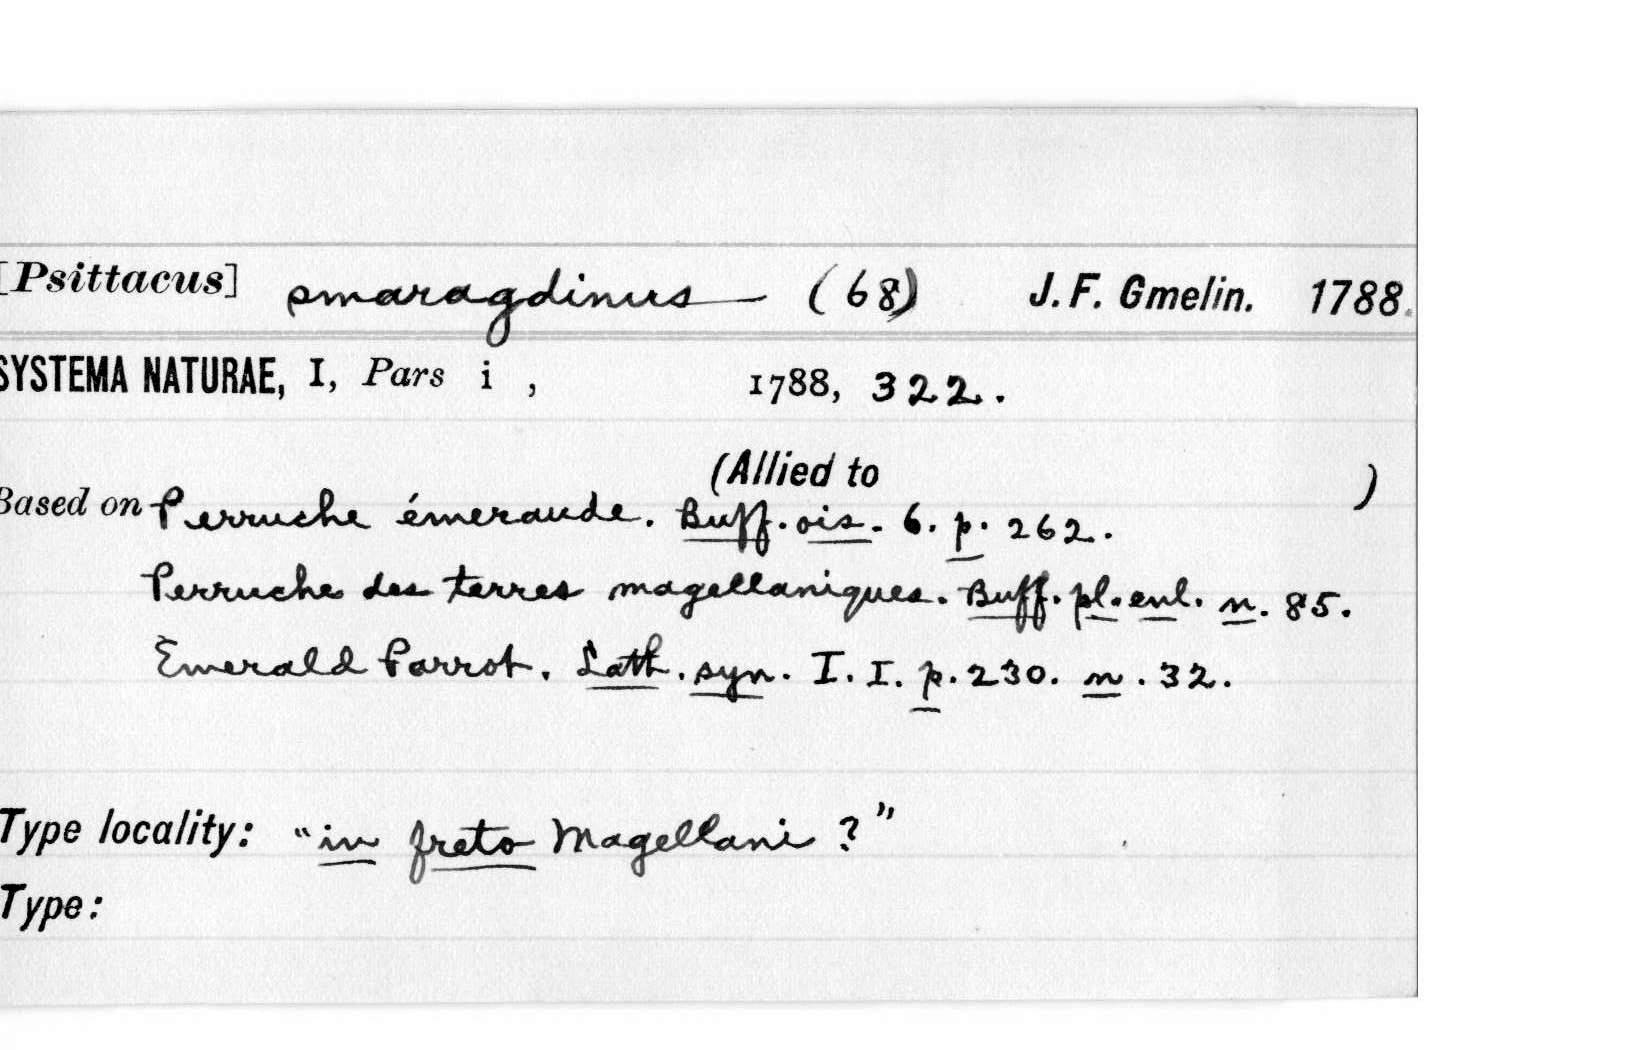 [Psittacus] smaragdinus (68) J. F. Gmelin. 1788.
SYSTEMA NATURAE, I, Pars i , 1788, 322.
(Allied to )
Based on Perruche émeraude. Buff. ois. 6. p. 262.
Perruche des terres magellaniques. Buff. pl. enl. n. 85.
Emerald Parrot. Lath. syn. I. I. p. 230. n. 32.
Type locality: "in freto Magellani ?"
Type: